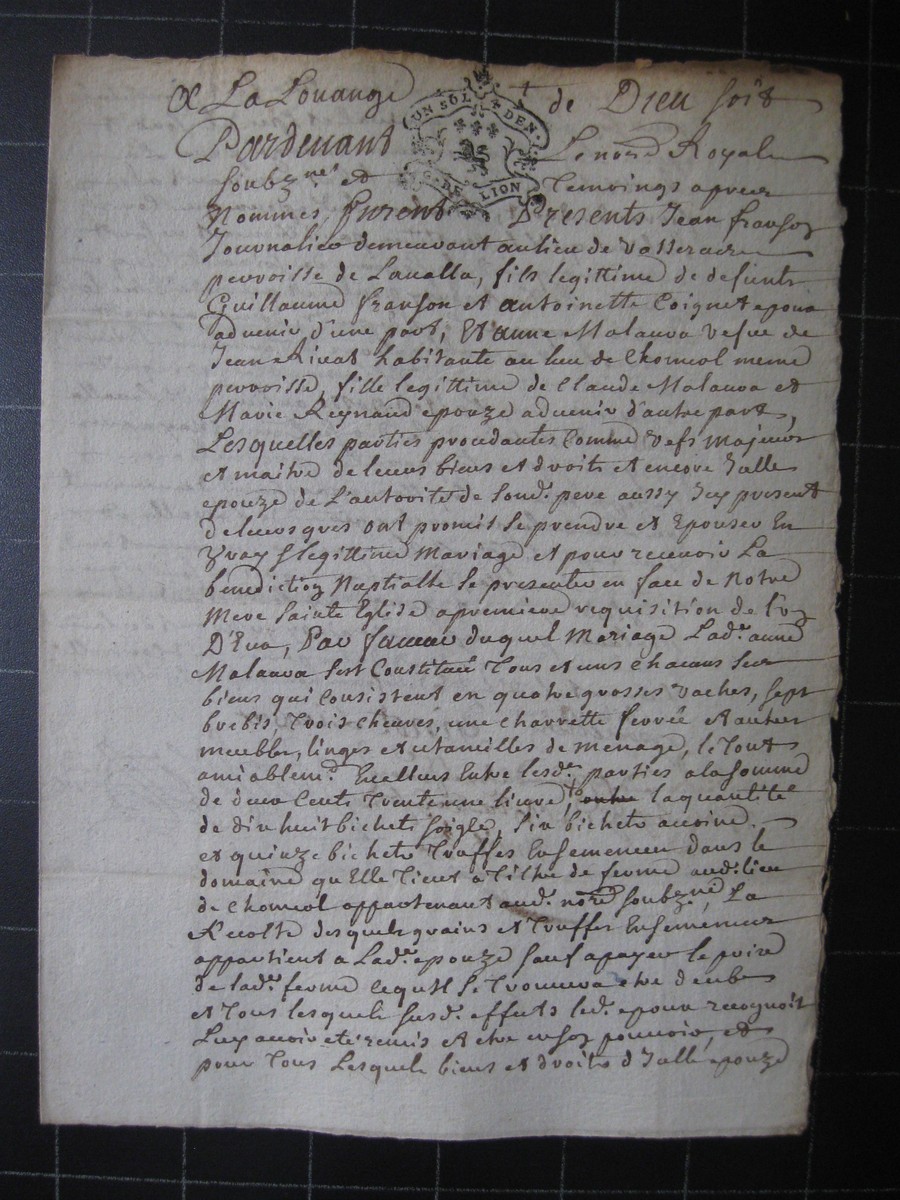 A La Louange de Dieu soit
UN SOL DEN
G. DE LION
Pardevant Le nore Royal
soubzne et Temoings apres
Nommes, furent Presents Jean franson
Journalier demeurant au lieu de
perroisse de Lavalla, fils legittime de defunts
Guillaume franson et antoinette Coignet epoux
advenir d'une part, Et anne Malaura vefve de
Jean Rivat habitante au lieu de Chomiol meme
perroisse, fille legittime de Claude Malaura et
Marie Reynaud epouze advenir d'autre part,
Lesquelles parties procedantes Comme vefs majeurs
et maitre de leurs biens et droits et encore Jalle
epouze de L'autorité de sond. pere aussy Icy present
de leurs gres ont promis se prendre et Epouser En
vray & legittime Mariage et pour recevoir La
benediction Nuptialle se presenter en face de Notre
Mere Sainte Eglise a premiere requisition de l'un
D'Eux, Par faveur duquel Mariage Lade. anne
Malaura s'est Constituée Tous et uns chacuns ses
biens qui Consistent en quatre grosses vaches, sept
brebis, Trois chevres, une charrette ferrée et autres
meubles, linges et utancilles de menage, le Tout
amiablemt. Evalluez Entre lesd. parties a la somme
de deux Cents Trente une livre, la quantité
de dix huit bichets soigle, six bichets avoine
et quinze bichets Truffes Ensemencez dans le
domaine qu'Elle Tient a Tiltre de ferme aud. lieu
de Chomiol appartenant aud. nore soubzne, La
Recolte desquels grains et Truffes Ensemencez
appartient a Lade. epouze sauf a payer le prix
de lade. ferme ce qu'Il se Trouvera etre deub
et Tous lesquels susd. effets led. epoux recognoit
Luy avoir eté remis et etre en son pouvoir, et
pour Tous Lesquels biens et droits d'Jalle epouze